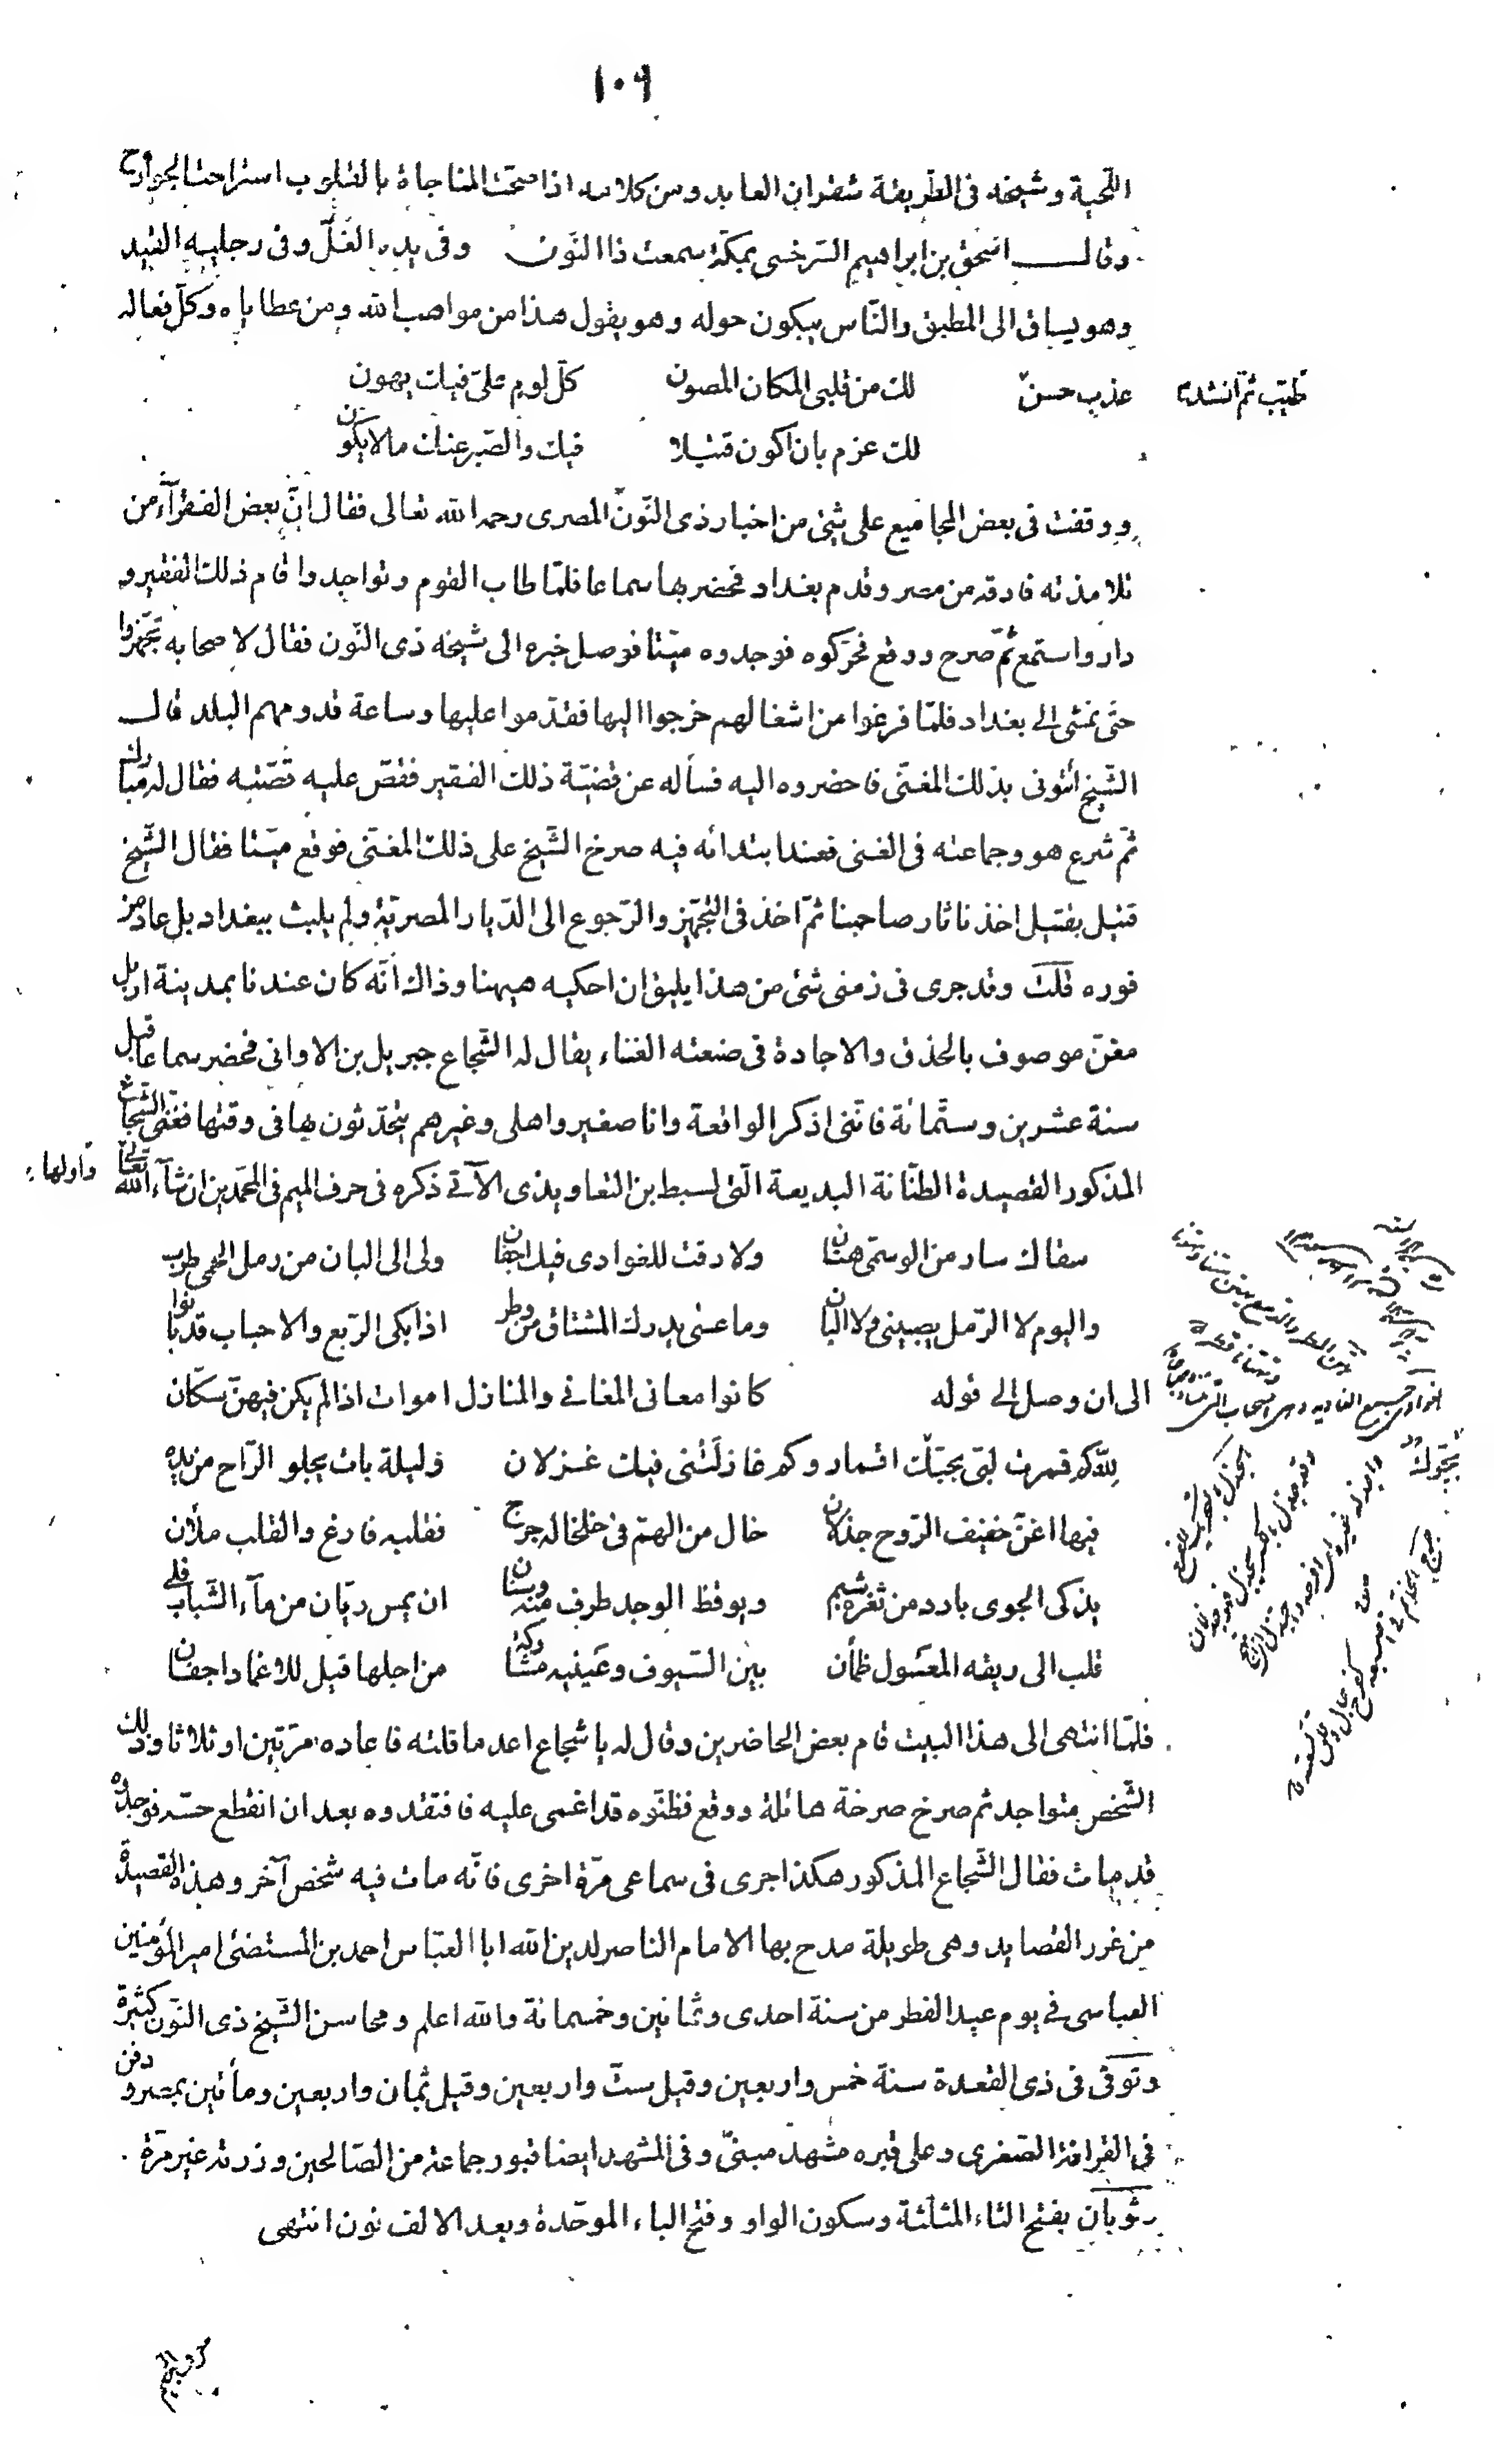 ١٠٩
اللّحية وشيخه فى الطّريقة شقران العابد ومن كلامه اذا صحّت المناجاة بالقلوب استراحت الجوارح
وقال اسحق بن ابراهيم السّرخسى بمكّة سمعت ذا النّون وفى يده الغلّ وفى رجليه القيد
وهو يساق الى المطبق والنّاس يبكون حوله وهو يقول هذا من مواهب الله ومن عطاياه وكلّ فعاله
عذب حسن طيّب ثمّ انشد
لك من قلبى المكان المصون كلّ لوم علىّ فيك يهون
لك عزم بان اكون قتيلا فيك والصّبر عنك مالا يكون
ووقفت فى بعض المجاميع على شئ من اخبار ذى النّون المصرى رحمه الله تعالى فقال انّ بعض الفقرآء من
تلامذته فارقه من مصر وقدم بغداد فحضر بها سماعا فلمّا طاب القوم وتواجدوا قام ذلك الفقير و
دار واستمع ثمّ صرخ ووقع فحرّكوه فوجدوه ميّتا فوصل خبره الى شيخه ذى النّون فقال لاصحابه تجهّزوا
حتّى نمشى الى بغداد فلمّا فرغوا من اشغالهم خرجوا اليها فقدموا عليها وساعة قدومهم البلد قال
الشّيخ ائتونى بذلك المغنّى فاحضروه اليه فسأله عن قضيّة ذلك الفقير فقصّ عليه قصّته فقال له مبارك
ثمّ شرع هو وجماعته فى الغنى فعند ابتدائه فيه صرخ الشّيخ على ذلك المغنّى فوقع ميّتا فقال الشّيخ
قتيل بقتيل اخذنا ثار صاحبنا ثمّ اخذ فى التّجهّز والرّجوع الى الدّيار المصريّة ولم يلبث ببغداد بل عاد من
فوره قلت وقد جرى فى زمنى شئ من هذا يليق ان احكيه ههنا وذاك انّه كان عندنا بمدينة اربل
مغنّ موصوف بالحذق والاجادة فى صنعته الغناء يقال له الشّجاع جبريل بن الاوانى فحضر سماعا قبل
سنة عشرين وستّمائة فانّنى اذكر الواقعة وانا صغير واهلى وغيرهم يتحدّثون بها فى وقتها فغنّى الشّجاع
المذكور القصيدة الطنّانة البديعة الّتى لسبط بن التعاويذى الآتى ذكره فى حرف الميم فى المحمّدين ان شآء الله تعالى واولها
سقاك سار من الوسمى هتّان ولا رقت للغوادى فيك اجفان ولى الى البان من رمل الحمى طرب
واليوم لا الرّمل يصبينى ولا البان وما عسى يدرك المشتاق من وطر اذا بكى الرّبع والاحباب قد بانوا
الى ان وصل الى قوله كانوا معانى المغانى والمنازل اموات اذا لم يكن فيهنّ سكّان
لله كم قمرت لبّى بجبّك اقمار وكم غازلتنى فيك غزلان وليلة بات يجلو الرّاح من يده
فيها اغنّ خفيف الرّوح جذلان خال من الهمّ فى خلخاله حرج فقلبه فارغ والقلب ملأن
يذكى الجوى بارد من ثغره شبم ويوقظ الوجد طرف منه وسنان ان يمس ريّان من مآء الشّباب فلى
قلب الى ريقه المعسول ظمأن بين السّيوف وعينيه مشاركة من اجلها قيل للاغماد اجفان
فلمّا انتهى الى هذا البيت قام بعض الحاضرين وقال له يا شجاع اعد ما قلته فاعاده مرّتين او ثلاثا وذلك
الشّخص متواجد ثم صرخ صرخة هائلة ووقع فظنّوه قد اغمى عليه فافتقدوه بعد ان انقطع حسّه فوجدوه
قد مات فقال الشّجاع المذكور هكذا جرى فى سماعى مرّة اخرى فانّه مات فيه شخص آخر وهذه القصيدة
من غرر القصايد وهى طويلة مدح بها الامام الناصر لدين الله ابا العبّاس احمد بن المستضئ امير المؤمنين
العباسى فى يوم عيد الفطر من سنة احدى وثمانين وخمسمائة والله اعلم ومحاسن الشّيخ ذى النّون كثيرة
وتوفّى فى ذى القعدة سنة خمس واربعين وقيل ستّ واربعين وقيل ثمان واربعين ومأتين بمصر ودفن
فى القرافة الصّغرى وعلى قبره مشهد مبنىّ وفى المشهد ايضا قبور جماعة من الصّالحين وزرته غير مرّة
وثوبان بفتح الثاء المثلّثة وسكون الواو وفتح الباء الموحّدة وبعد الالف نون انتهى